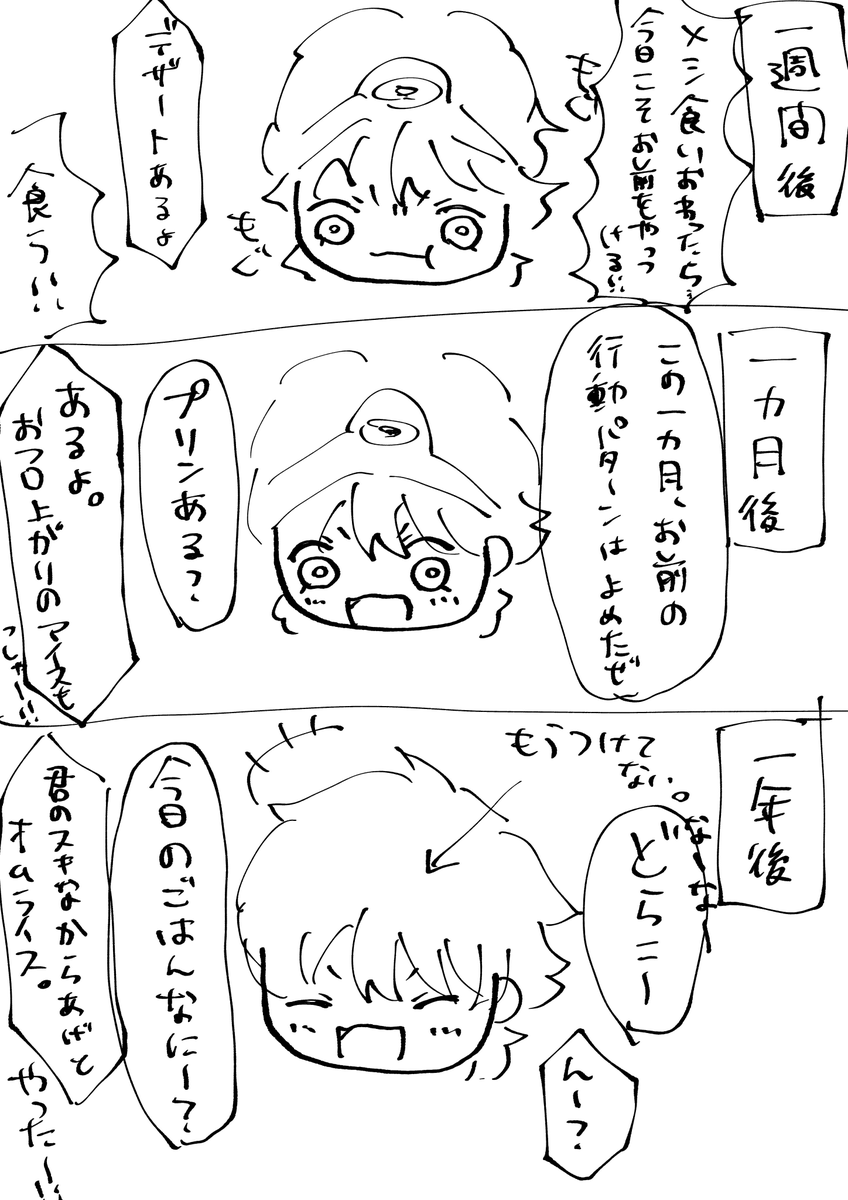 一週間後
メシ食いおわったら
今日こそお前をやっつ
ける!!
もぐ
もぐ
デザートあるよ
食う!!
一カ月後
この一カ月、お前の
行動パターンはよめたぜ
プリンある?
あるよ。
おフロ上がりのアイスも
っしゃー!!
一年後
もうつけて
ない。
なーなー
どらにー
んー?
今日のごはんなにー?
君のスキなからあげと
オムライス。
やったー!!